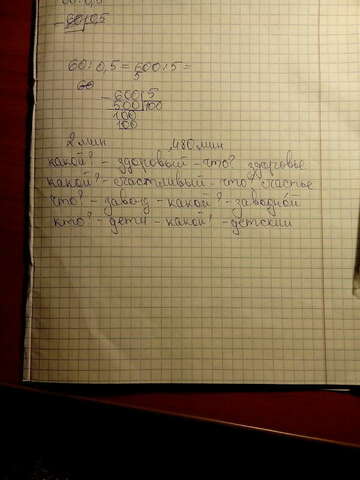 60 0,5
60 : 0,5 = 600 : 5 =
5
60
600 5
500 100
100
100
2 мин 480 мин
какой? - здоровый - что? здоровье
какой? - счастливый - что? счастье
что? - завод - какой? - заводной
кто? - дети - какой? - детский